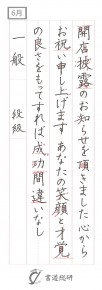 6月
開店披露のお知らせを頂きました心から
お祝い申し上げます あなたの笑顔と才覚
の良さをもってすれば成功間違いなし
一般 段級
書道総研